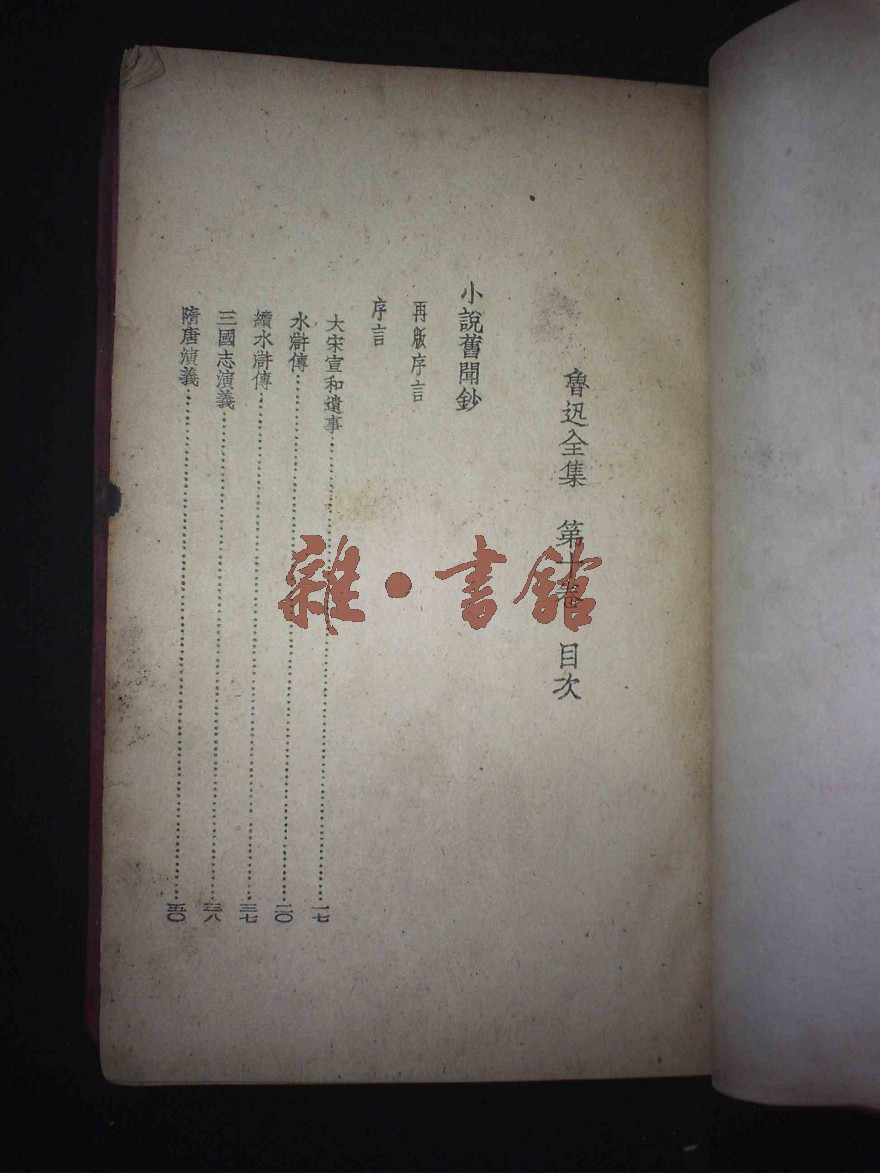 魯迅全集　第十卷　目次
小說舊聞鈔
再版序言
序言
大宋宣和遺事……一七
水滸傳……二〇
續水滸傳……三七
三國志演義……三八
隋唐演義……五〇
雜·書館